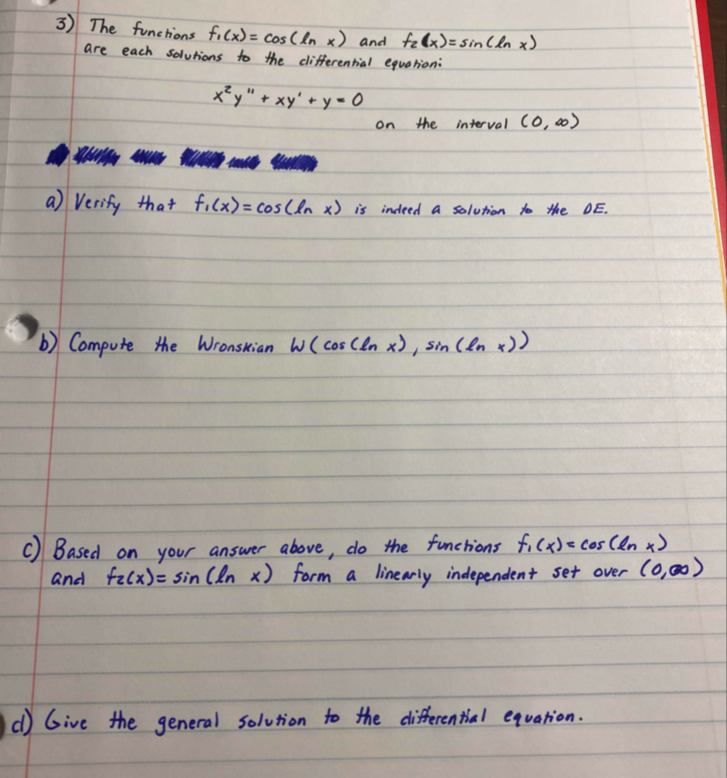 3) The functions f₁(x) = cos(ln x) and f₂(x) = sin(ln x)
are each solutions to the differential equation:
x²y" + xy' + y = 0
on the interval (0, ∞)
a) Verify that f₁(x) = cos(ln x) is indeed a solution to the DE.
b) Compute the Wronskian W(cos(ln x), sin(ln x))
c) Based on your answer above, do the functions f₁(x) = cos(ln x)
and f₂(x) = sin(ln x) form a linearly independent set over (0, ∞)
d) Give the general solution to the differential equation.